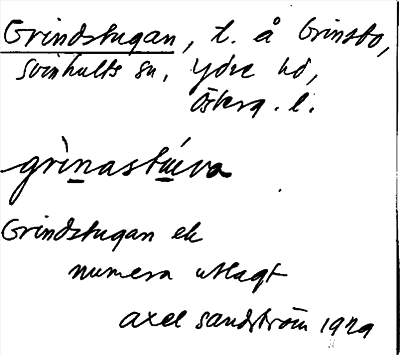 Grindstugan, t. å Grinsbo,
Svinhults sn, Ydre hd,
Österg. l.
grìnastúva
Grindstugan ek
numera utlagt
Axel Sandström 1929